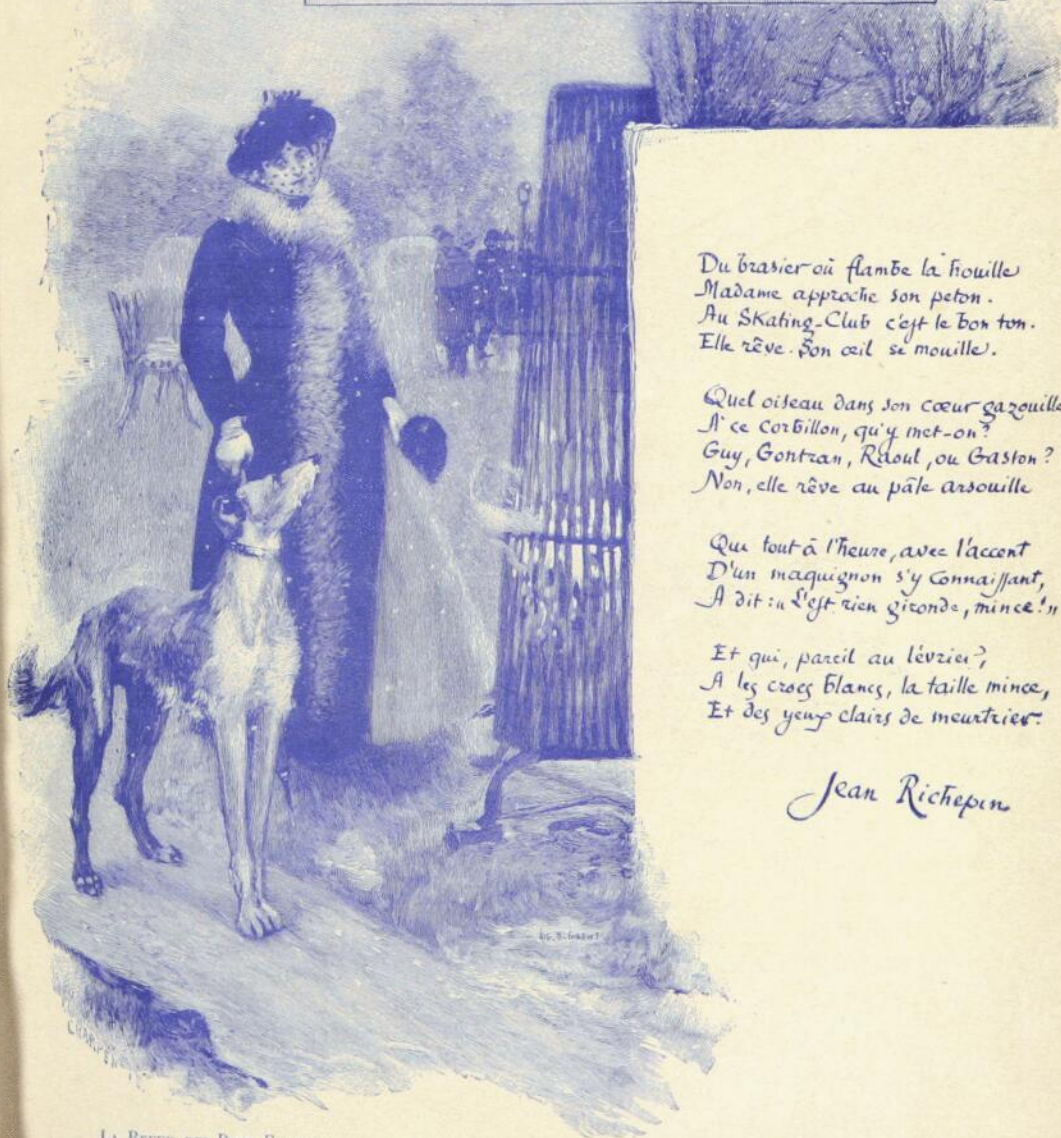 Du brasier où flambe la houille
Madame approche son peton.
Au Skating-Club c'est le bon ton.
Elle rêve. Son œil se mouille.
Quel oiseau dans son cœur gazouille
A ce corbillon, qu'y met-on?
Guy, Gontran, Raoul, ou Gaston?
Non, elle rêve au pâle arsouille
Qui tout à l'heure, avec l'accent
D'un maquignon s'y connaissant,
A dit: « L'est rien gironde, mince! »
Et qui, pareil au lévrier,
A les crocs blancs, la taille mince,
Et des yeux clairs de meurtrier.
Jean Richepin
LA